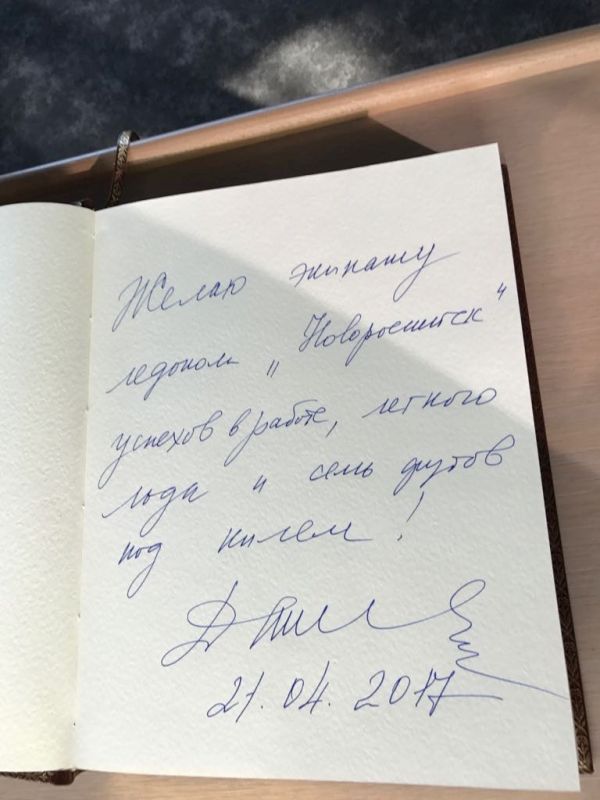 Желаю экипажу
ледокол „Новороссийск“
успехов в работе, легкого
льда и семь футов
под килем!
21.04.2017